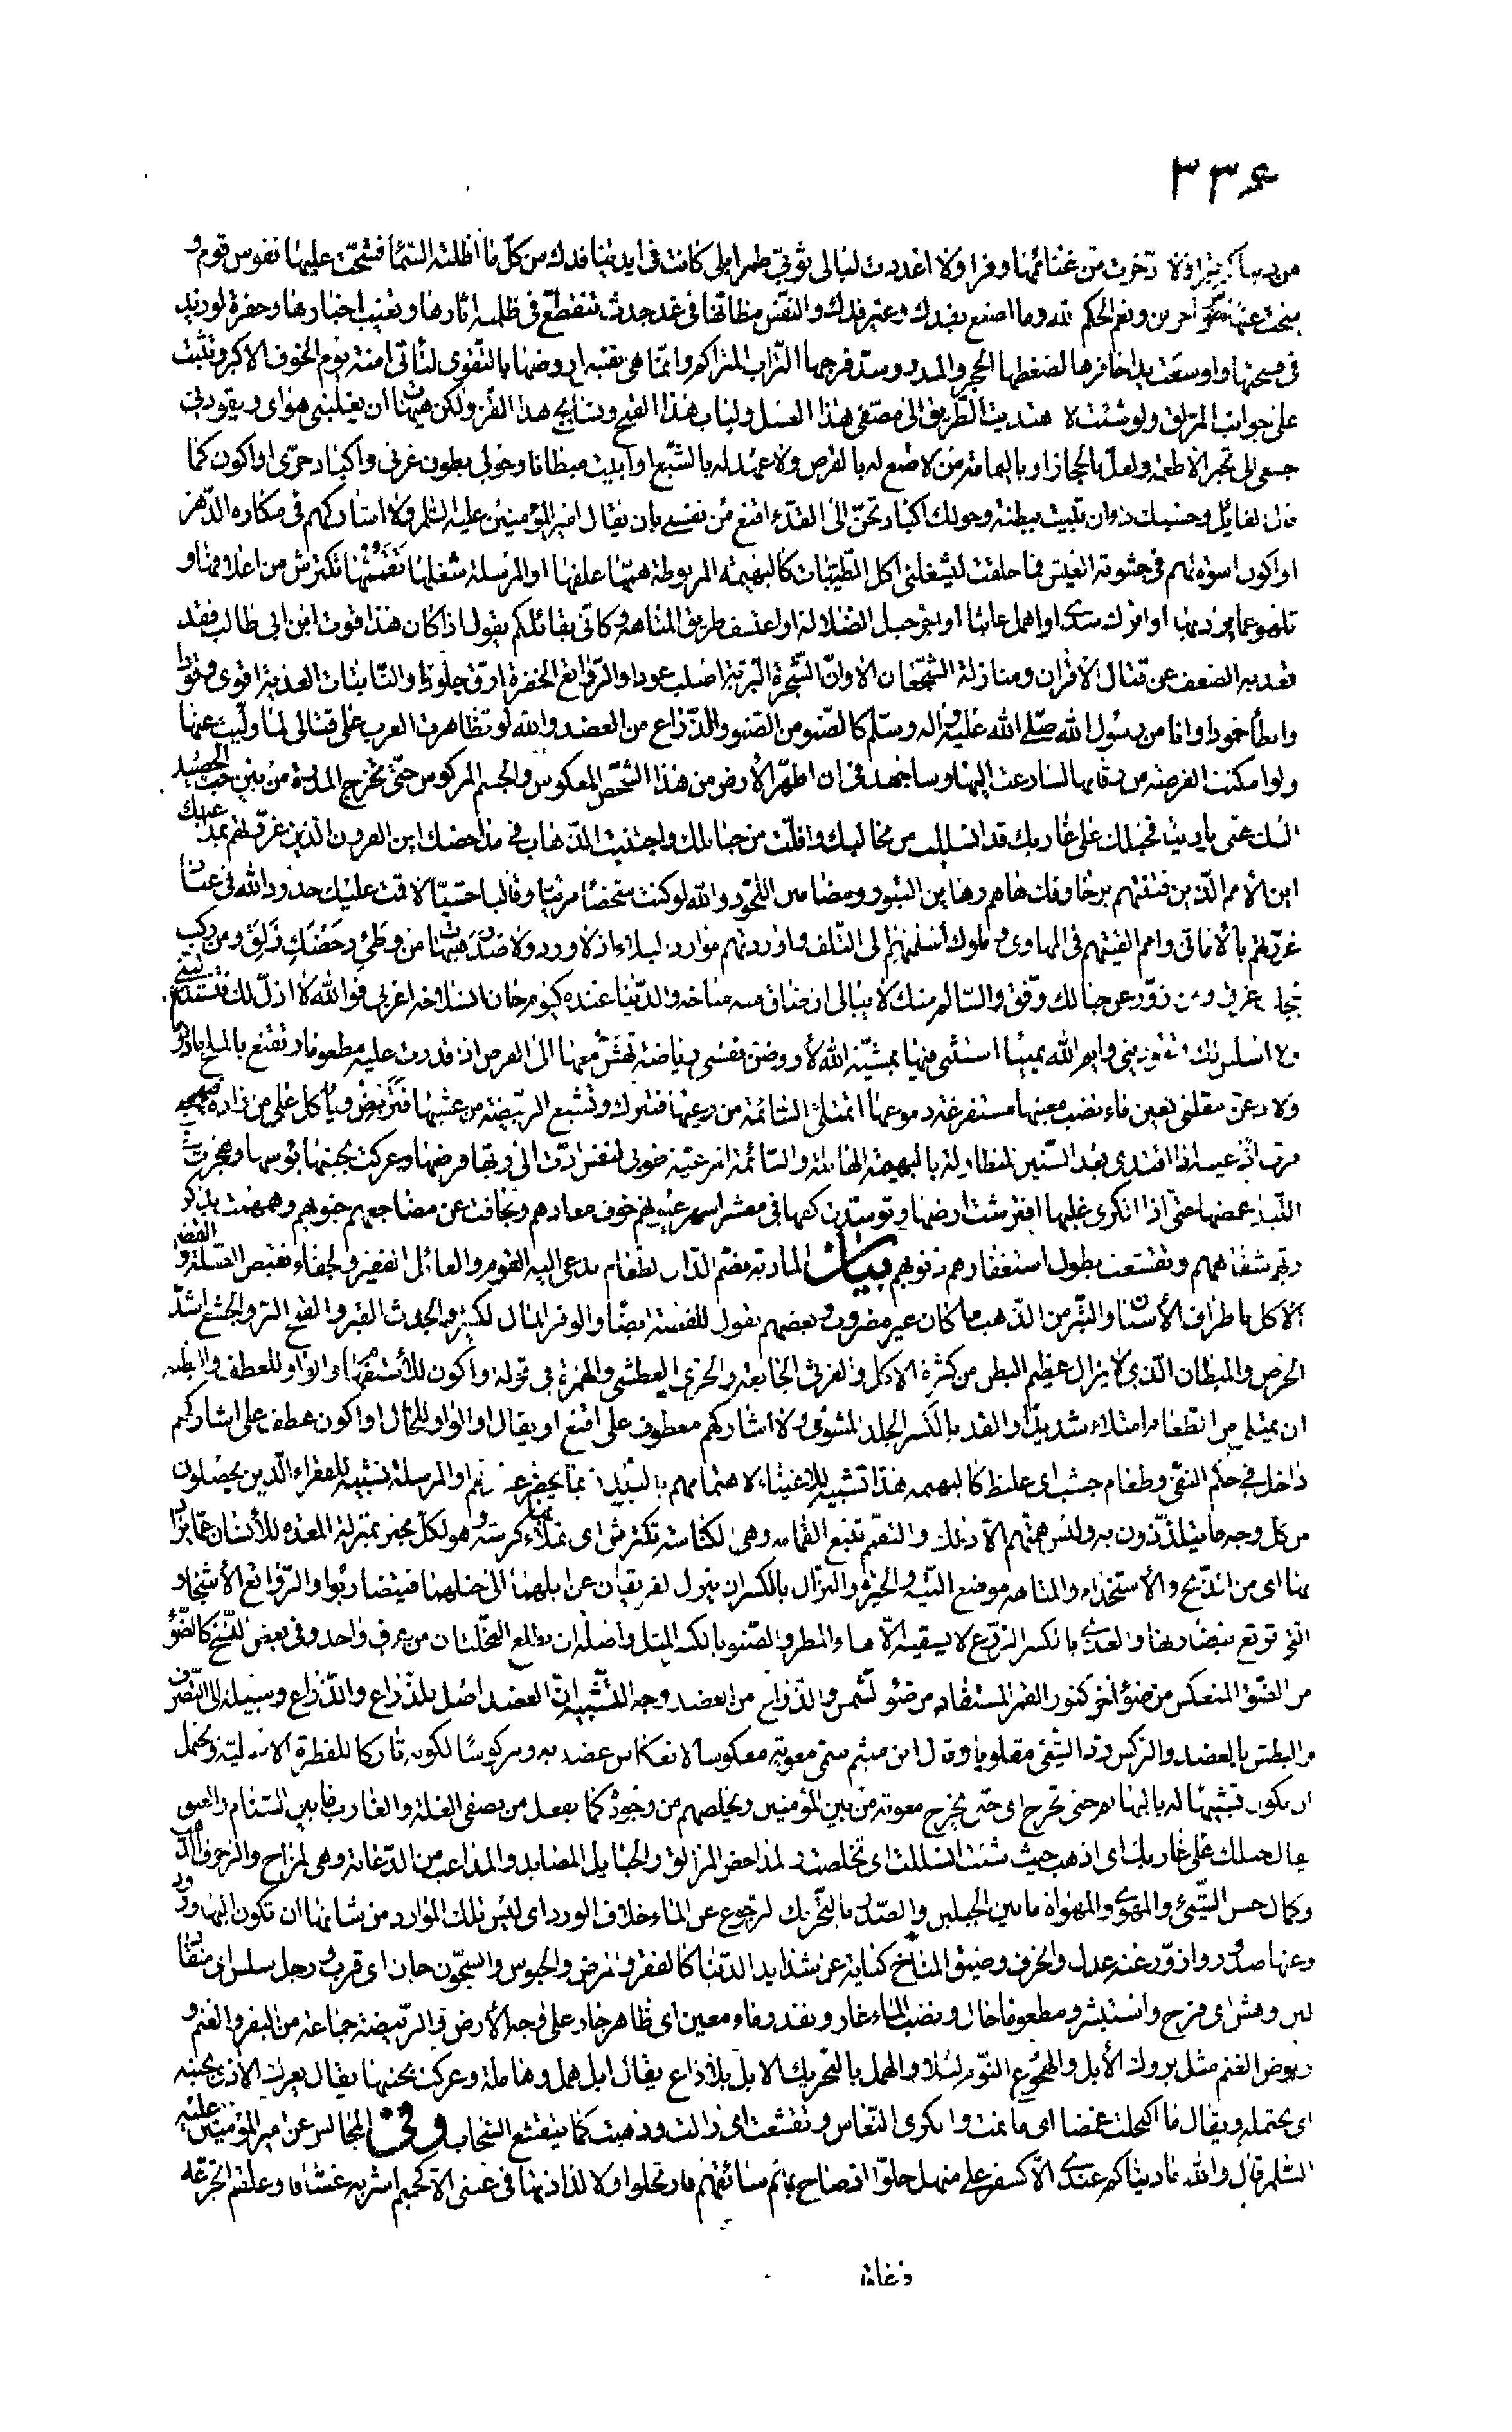 ٣٣۶
من دنياكم تبرا ولا ادّخرت من غنائمها وفرا ولا اعددت لبالى ثوبى طمرا بلى كانت فى ايدينا فدك من كلّ ما اظلته السّماء فشحّت عليها نفوس قوم و
سخت عنها نفوس آخرين ونعم الحكم لله وما اصنع بفدك وغير فدك والنّفس مظانّها فى غد جدث تنقطع فى ظلمته اثارها وتغيب اخبارها وحفرة لو زيد
فى فسحتها واوسعت يدا حافرها لضغطها الحجر والمدر وسدّ فرجها التّراب المتراكم وانّما هى نفسى اروضها بالتّقوى لتأتى امنة يوم الخوف الاكبر وتثبت
على جوانب المزلق ولو شئت لاهتديت الطّريق الى مصفّى هذا العسل ولباب هذا القمح ونسايج هذا القز ولكن هيهات ان يغلبنى هواى ويقودنى
جشعى الى تخير الاطعمة ولعلّ بالحجاز او باليمامة من لا طمع له بالقرص ولا عهد له بالشّبع او ابيت مبطانا وحولى بطون غرثى واكباد حرّى او اكون كما
قال القائل وحسبك داء ان تبيت ببطنة وحولك اكباد تحنّ الى القدّ ءاقنع من نفسى بان يقال امير المؤمنين عليه السّلم ولا اشاركهم فى مكاره الدّهر
او اكون اسوة لهم فى جشوبة العيش فما خلقت ليشغلنى اكل الطّيّبات كالبهيمة المربوطة همّها علفها او المرسلة شغلها تقمّمها تكترش من اعلافها و
تلهو عما يراد بها او اترك سدى او اهمل عابثا او اجرّ حبل الضّلالة او اعتسف طريق المتاهة وكانّى بقائلكم يقول اذا كان هذا قوت ابن ابى طالب فقد
قعد به الضعف عن قتال الاقران ومنازلة الشّجعان الا وانّ الشّجرة البرّية اصلب عودا والرّواتع الخضرة ارقّ جلودا والنّابتات العذية اقوى وقودا
وابطأ خمودا وانا من رسول الله صلّى الله عليه واله وسلّم كالصّنو من الصّنو والذّراع من العضد والله لو تظاهرت العرب على قتالى لما ولّيت عنها
ولو امكنت الفرصة من رقابها لسارعت اليها وساجهد فى ان اطهّر الأرض من هذا الشّخص المعكوس والجسم المركوس حتّى تخرج المدرة من بين حبّ الحصيد
اليك عنّى يا دنيا فحبلك على غاربك قد انسللت من مخالبك وافلّت من حبائلك واجتنبت الذّهاب فى مداحضك اين القرون الّذين غررتهم بمداعبك
اين الأمم الّذين فتنتهم بزخارفك ها هم رهاين القبور ومضامين اللّحود والله لو كنت شخصًا مرئيّا وقالبا حسّيّا لاقمت عليك حدود الله فى عباد
غررتهم بالأمانى وامم القيتهم فى المهاوى وملوك اسلمتهم الى التّلف واوردتهم موارد البلاء اذ لا ورد ولا صدر هيهات من وطئ دحضك زلق ومن ركب
لججك غرق ومن ازورّ عن حبالك وفّق والسّالم منك لا يبالى ان ضاق به مناخه والدّنيا عنده كيوم حان انسلاخه اعزبى عنّى فوالله لا اذلّ لك فتستذلّينى
ولا اسلس لك فتقودينى وايم الله يمينا استثنى فيها بمشيّة الله لأروضنّ نفسى رياضة تهشّ معها الى القرص اذا قدرت عليه مطعوما وتقنع بالملح مأدوما
ولادعنّ مقلتى كعين ماء نضب معينها مستفرغة دموعها اتمتلئ السّائمة من رعيها فتبرك وتشبع الرّبيضة من عشبها فتربض ويأكل علىّ من زاده فيهجع
قرت اذا عينه اذا اقتدى بعد السّنين المتطاولة بالبهيمة الهاملة والسّائمة المرعيّة طوبى لنفس ادّت الى ربّها فرضها وعركت بجنبها بؤسها وهجرت فى
اللّيل غمضها حتّى اذا الكرى غلبها افترشت ارضها وتوسّدت كفّها فى معشر اسهر عيونهم خوف معادهم وتجافت عن مضاجعهم جنوبهم وهمهمت بذكر
ربّهم شفاههم وتقشّعت بطول استغفارهم ذنوبهم بيان المادبة بضمّ الدّال لطعام يدعى اليه القوم والعائل الفقير والجفاء نقيض الصّلة والقضم
الاكل باطراف الأسنان والتّبر من الذّهب ما كان غير مضروب وبعضهم يقول للفضّة ايضًا والوفر المال الكثير والجدث القبر والقمح البرّ والجشع اشدّ
الحرص والمبطان الّذى لا يزال عظيم البطن من كثرة الاكل والغرثى الجايعة والحرّى العطشى والهمزة فى قوله واكون للأستفهام والواو للعطف والبطنة
ان يمتلى من الطّعام امتلاء شديدًا والقد بالكسر الجلد المشوىّ ولا اشاركهم معطوف على اقنع او يقال او الواو للحال او اكون عطف على اشاركهم
داخل فى حكم النفى وطعام جشب اى غليظ كالبهيمة هذا تشبيه للاغنياء لاهتمامهم بالتلذّذ بما يحضر عندهم او المرسلة تشبيه للفقراء الّذين يحصلون
من كل وجه ما يتلذّذون به وليس همّتهم الّا ذلك والتقمّم تتبع القمامة وهى الكناسة تكترش اى تملأ بها كرشها وهو لكل مجتر بمنزلة المعدة للأنسان عمّا يراد
بها اى من الذّبح والأستخدام والمتاهة موضع التّيه والحيرة والنزال بالكسر ان ينزل الفريقان عن ابلهما الى خيلهما فيتضاربوا والرّواتع الأشجار
الّتى ترتع بنضارتها والعذى بالكسر الزّرع لا يسقيه الّا ماء المطر والصّنو بالكسر المثل واصله ان يطلع النّخلتان من عرق واحد وفى بعض النّسخ كالضّوء
من الضّوء المنعكس من ضوء اخر كنور القمر المستفاد من ضوء الشّمس والذّراع من العضد وجه التّشبيه انّ العضد اصل للذّراع والذّراع وسيلة الى التّصرف
والبطش بالعضد والرّكس ردّ الشّىء مقلوبا وقال ابن ميثم سمّى معوية معكوسا لانعكاس عضد به ومركوسًا لكونه تاركا للفطرة الاصليّة ويحتمل
ان يكون تشبيهًا له بالبهائم حتى تخرج اى حتّى يخرج معوية من بين المؤمنين ويخلصهم من وجوده كما يفعل من يصفى الغلة والغارب ما بين السّنام والعنق
يقال حبلك على غاربك اى اذهب حيث شئت انسللت اى تخلصت والمداحض المزالق والحبايل المصايد والمداعب من الدّعابة وهى المزاح والزخرف الذّهب
وكمال حسن الشّىء والمهوى والمهواة ما بين الجبلين والصّدر بالتّحريك الرجوع عن الماء خلاف الورد اى ليس تلك الموارد من شانها ان تكون اليها ورود
وعنها صدور وازورّ عنه عدل وانحرف وضيق المناخ كناية عن شدايد الدّنيا كالفقر والمرض والحبوس والسّجون حان اى قرب ورجل سلس اى منقاد
لين وهش اى فرح واستبشر ومطعوما حال ونضب الماء غار ونفد وماء معين اى ظاهر جار على وجه الأرض والرّبيضة جماعة من البقر والغنم و
ربوض الغنم مثل بروك الأبل والهجوع النّوم ليلا والهمل بالتّحريك الابل بلا راع يقال ابل همل وهاملة وعركت بجنبها يقال يعرك الاذى بجنبه
اى يحتمله ويقال ما اكتحلت غمضا اى ما نمت والكرى النّعاس وتقشّعت اى زالت وذهبت كما يتقشّع السّحاب وفى المجالس عن امير المؤمنين عليه
السّلم قال والله ما دنياكم عندى الّا كسفر على منهل حلّوا اذ صاح بهم سائقهم فارتحلوا ولا لذاذتها فى عينى الّا كحميم اشربه غسّاقا وعلقم اتجرّعه
زعاقا